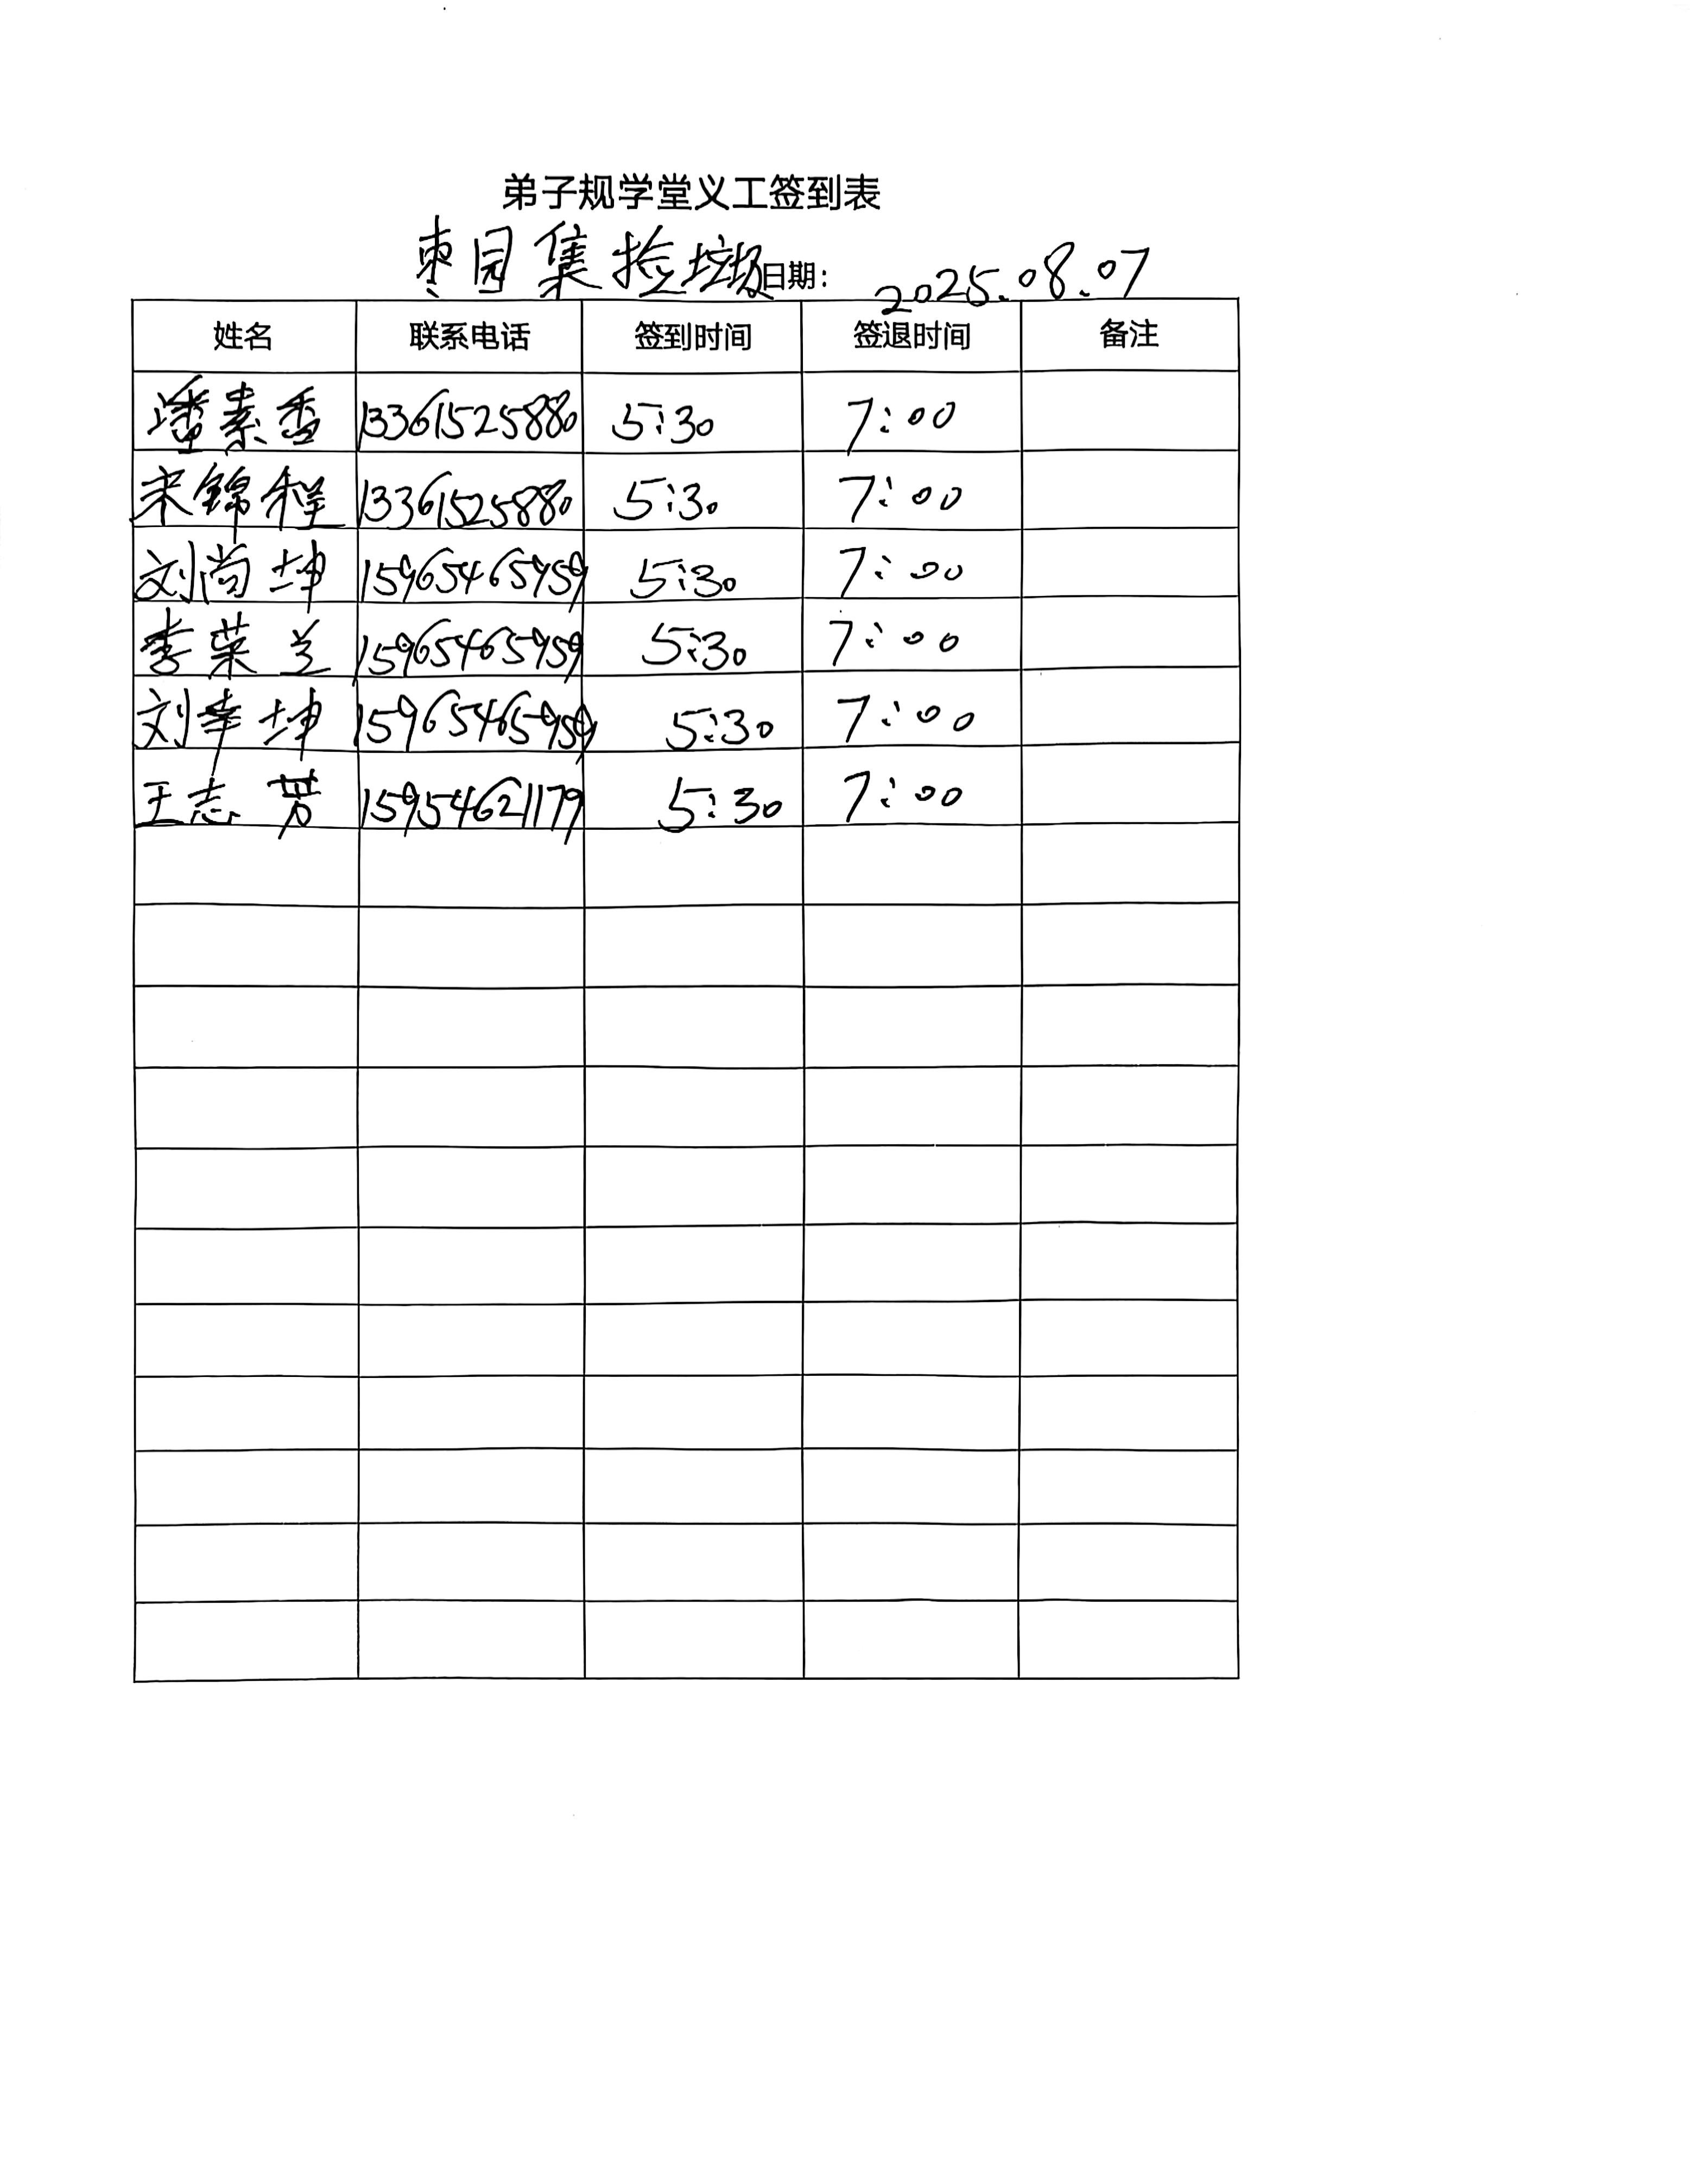 弟子规学堂义工签到表
枣园集捡垃圾 日期： 2025.08.07
姓名 联系电话 签到时间 签退时间 备注
潘素香 13361525880 5:30 7:00
宋锦程 13361525880 5:30 7:00
刘尚坤 15965465959 5:30 7:00
李荣兰 15965465959 5:30 7:00
刘幸坤 15965465959 5:30 7:00
王志芳 15954621179 5:30 7:00